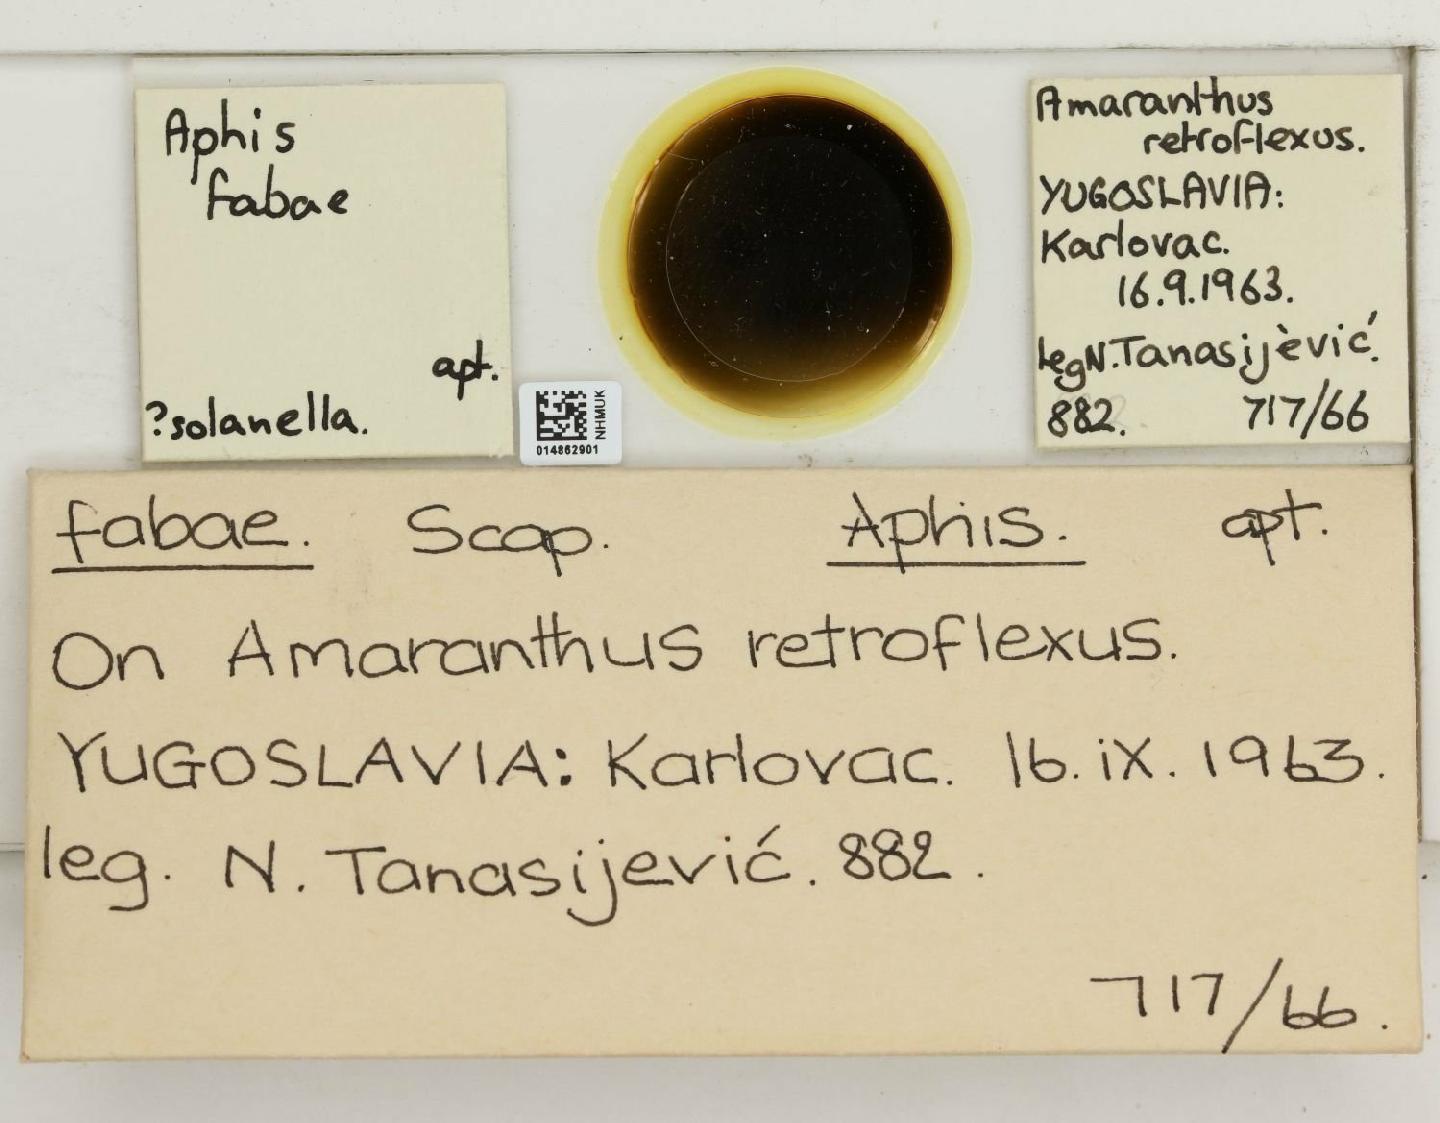 Aphis
fabae
apt.
?solanella.
NHMUK
014862901
Amaranthus
retroflexus.
YUGOSLAVIA:
Karlovac.
16.9.1963.
leg N. Tanasijèvić.
882. 717/66
fabae. Scop. Aphis. apt.
On Amaranthus retroflexus.
YUGOSLAVIA: Karlovac. 16. iX. 1963.
leg. N. Tanasijević. 882.
717/66.